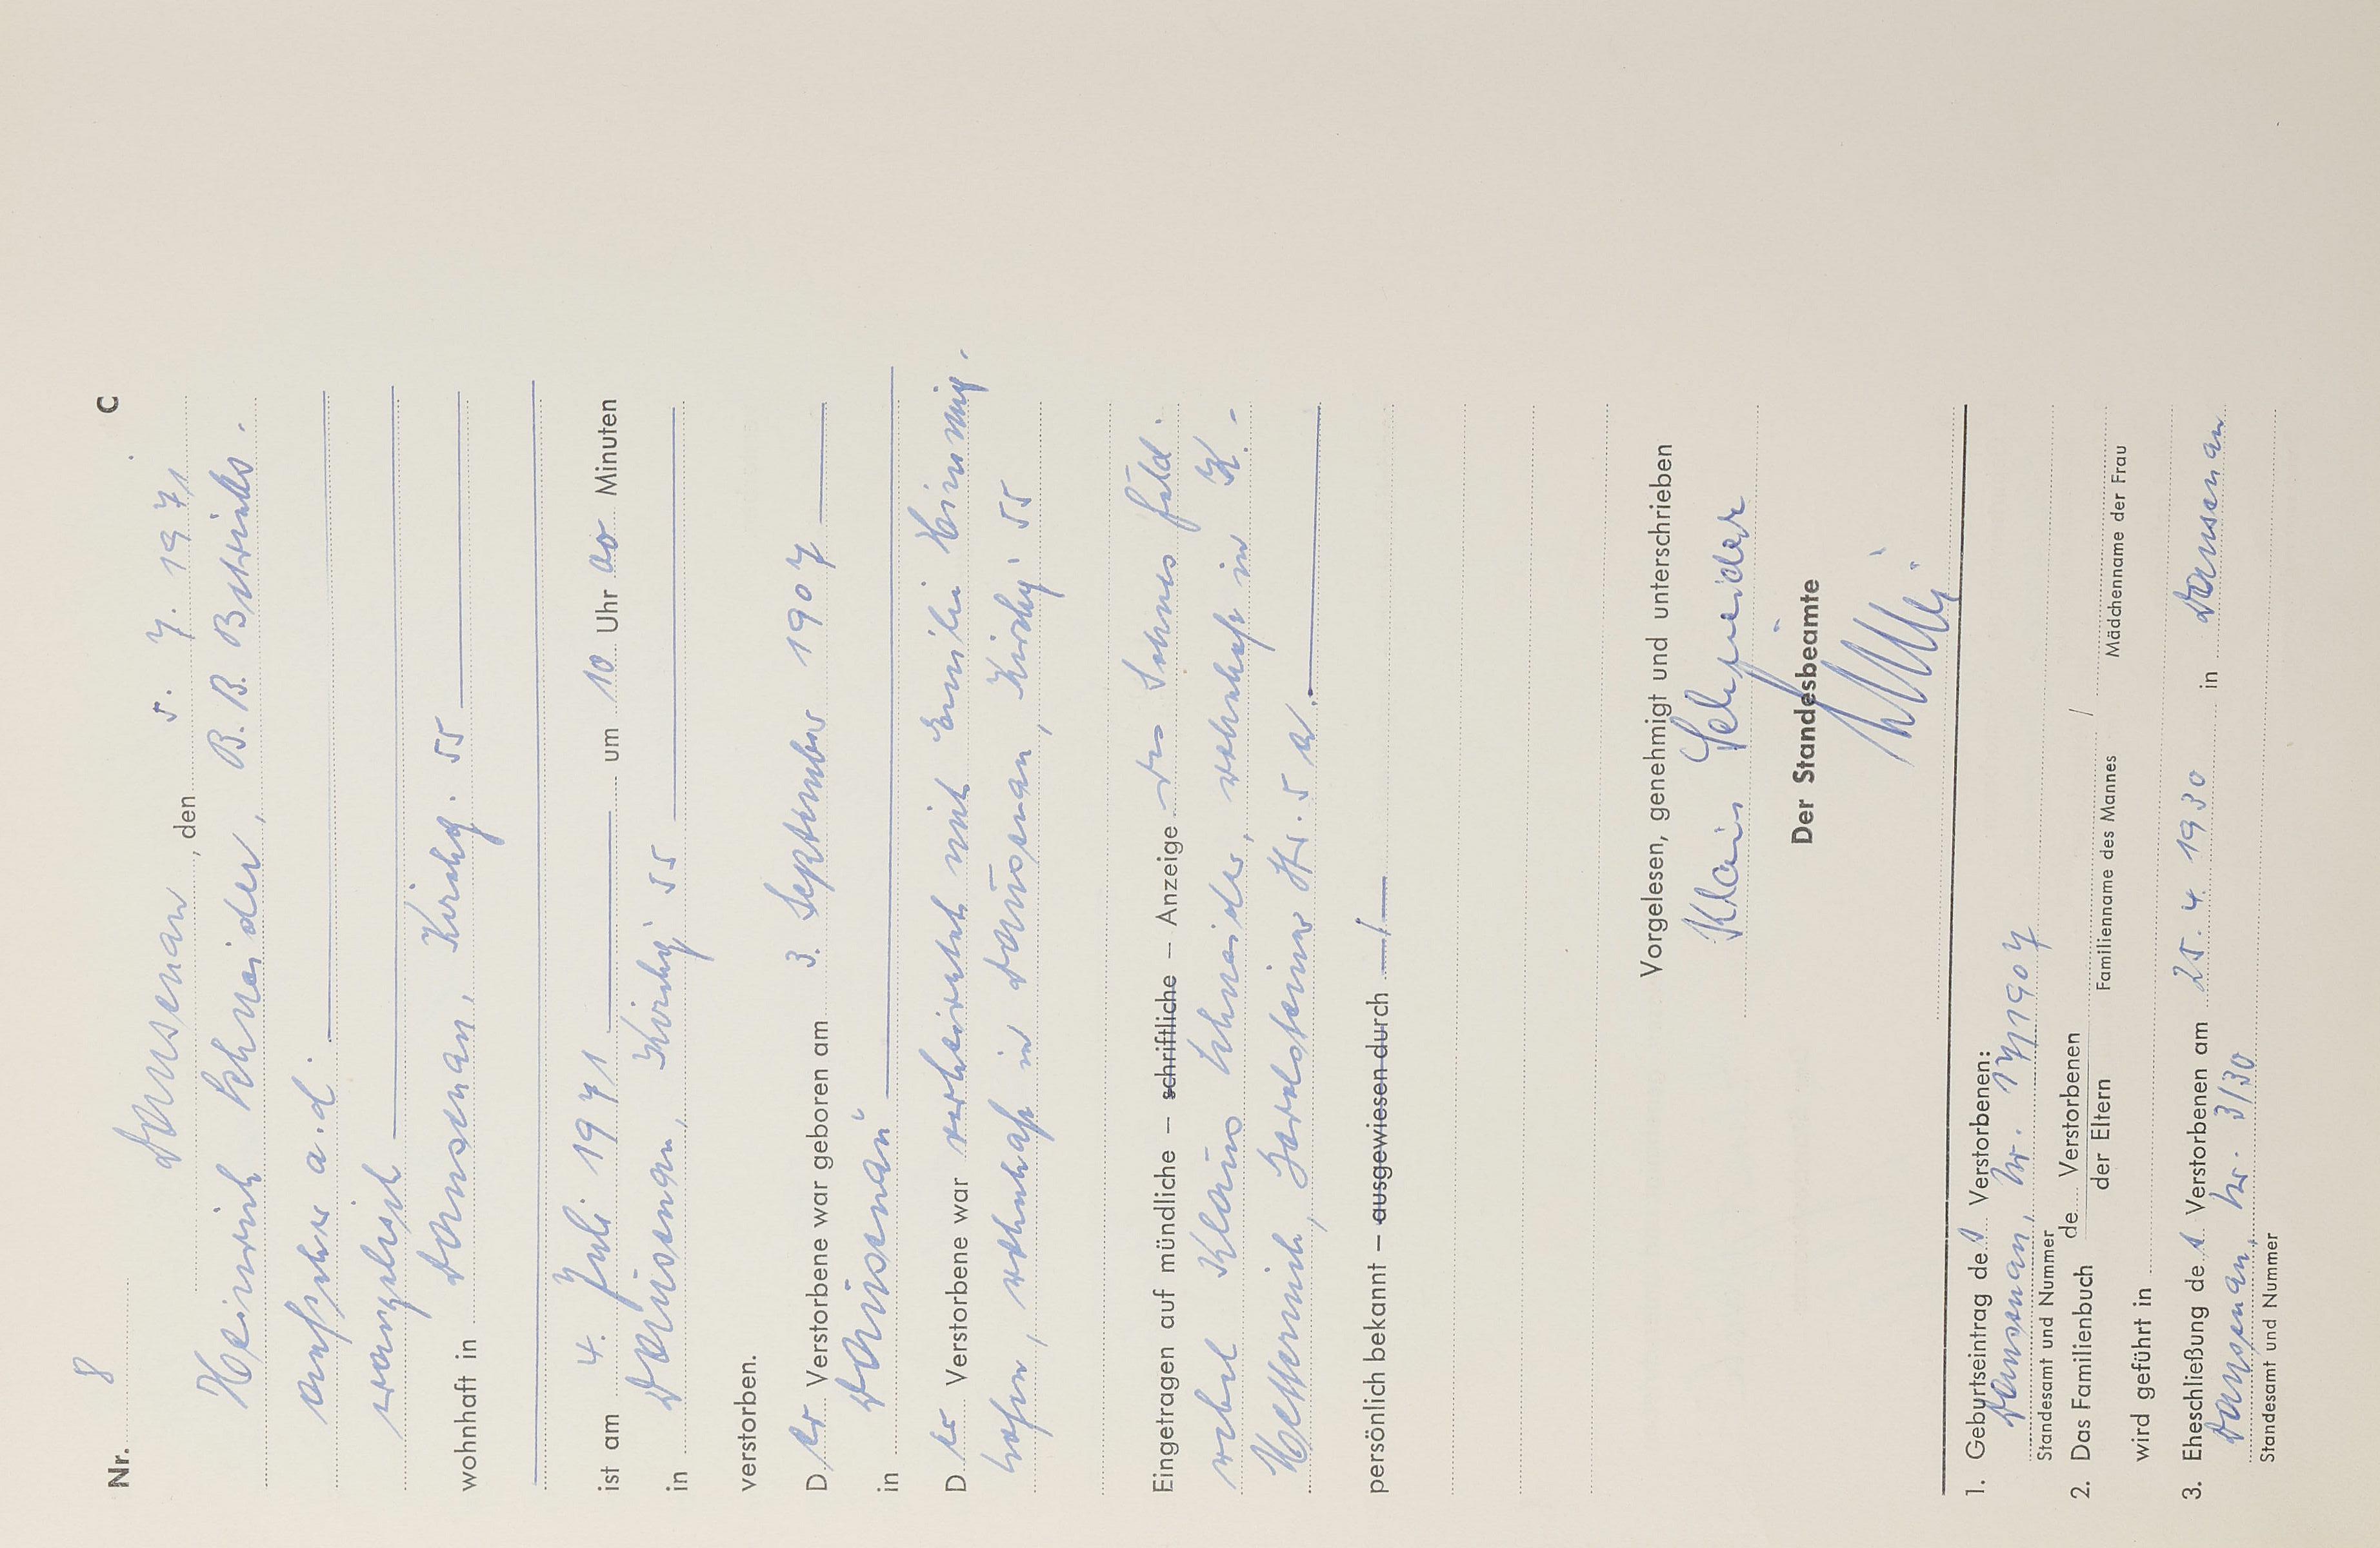 Nr. 8 C
Dausenau, den 5. 7. 1971
Heinrich Schneider, B.B. Betriebs-
aufseher a.d.
evangelisch
wohnhaft in Dausenau, Kirchg. 55
ist am 4. Juli 1971 um 10 Uhr 00 Minuten
in Dausenau, Kirchg. 55
verstorben.
Der Verstorbene war geboren am 3. September 1907
in Dausenau
Der Verstorbene war verheiratet mit Emilie
wohnhaft in Dausenau, Kirchg. 55
Eingetragen auf mündliche – schriftliche – Anzeige des Sohnes Feld-
webel Klaus Schneider, wohnhaft in K.-
Metternich, Str. 5 a.
persönlich bekannt – ausgewiesen durch —/—
Vorgelesen, genehmigt und unterschrieben
Klaus Schneider
Der Standesbeamte
1. Geburtseintrag des Verstorbenen:
Dausenau, Nr. 17/1907
Standesamt und Nummer
2. Das Familienbuch de Verstorbenen /
der Eltern Familienname des Mannes Mädchenname der Frau
wird geführt in
3. Eheschließung des Verstorbenen am 25. 4. 1930 in Dausenau
Dausenau, Nr. 3/30
Standesamt und Nummer